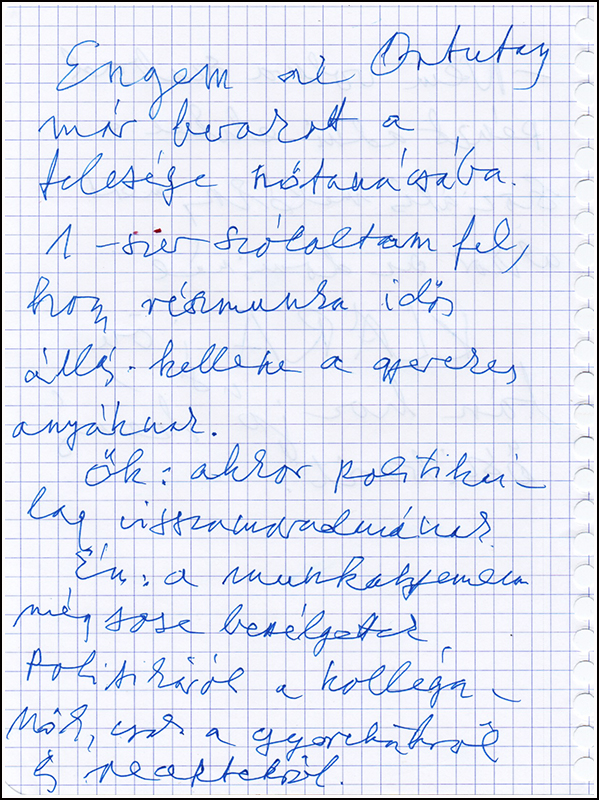 Engem az Ortutay
már bevont a
felesége nőtanácsába.
1-szer szólaltam fel,
hogy részmunka idős
állás kellene a gyerekes
anyáknak.
Ők: akkor politikai-
lag visszamaradnának
Én: a munkahelyemen
még sose beszélgettek
politikáról a kollegá-
nők, csak a gyerekükről
és receptekről.